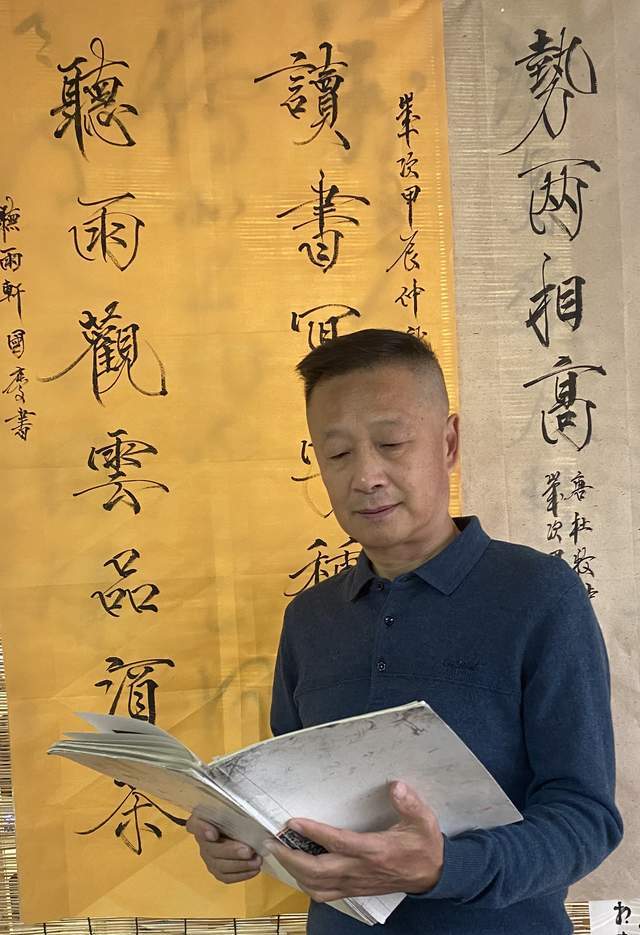 勢兩相高
唐杜牧
歲次
歲次甲辰仲
讀書寫
種
聽雨觀雲品酒茶
聽雨軒國慶書